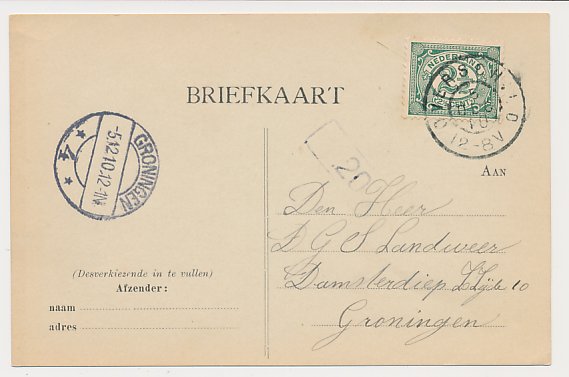 BRIEFKAART
NEDERLAND
GRONINGEN
-5.12.10.12-1N
4
12-8V
20
AAN
Den Heer
D G S Landweer
Damsterdiep Z.Zijde 10
Groningen
(Desverkiezende in te vullen)
Afzender:
naam
adres